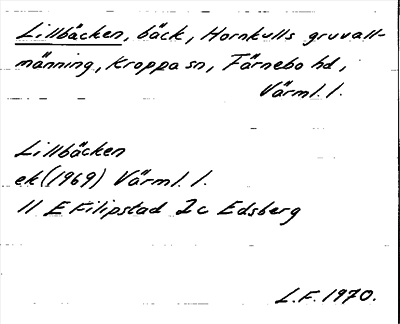 Lillbäcken, bäck, Hornkulls gruvall-
männing, Kroppa sn, Färnebo hd,
Värml. l.
Lillbäcken
ek (1969) Värml. l.
11 E Filipstad 2c Edsberg
L.F. 1970.